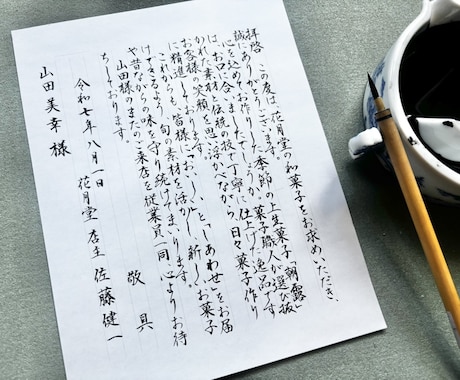 拝啓 この度は、花月堂の和菓子をお求めいただき、
誠にありがとうございます。
心を込めてお作りした季節の上生菓子「朝露」
はお口に合いましたでしょうか。菓子職人が選び抜
かれた素材と伝統の技で丁寧に仕上げた逸品です
お客様の笑顔を思い浮かべながら、日々菓子作り
に精進しております。
これからも、皆様に「おいしい」と「しあわせ」をお届
けできるよう、旬の素材を活かし、新しいお菓子
や昔ながらの味を守り続けてまいります。
山田様のまたのご来店を従業員一同、心よりお待
ちしております。
敬具
令和七年八月一日 花月堂 店主 佐藤健一
山田美幸様